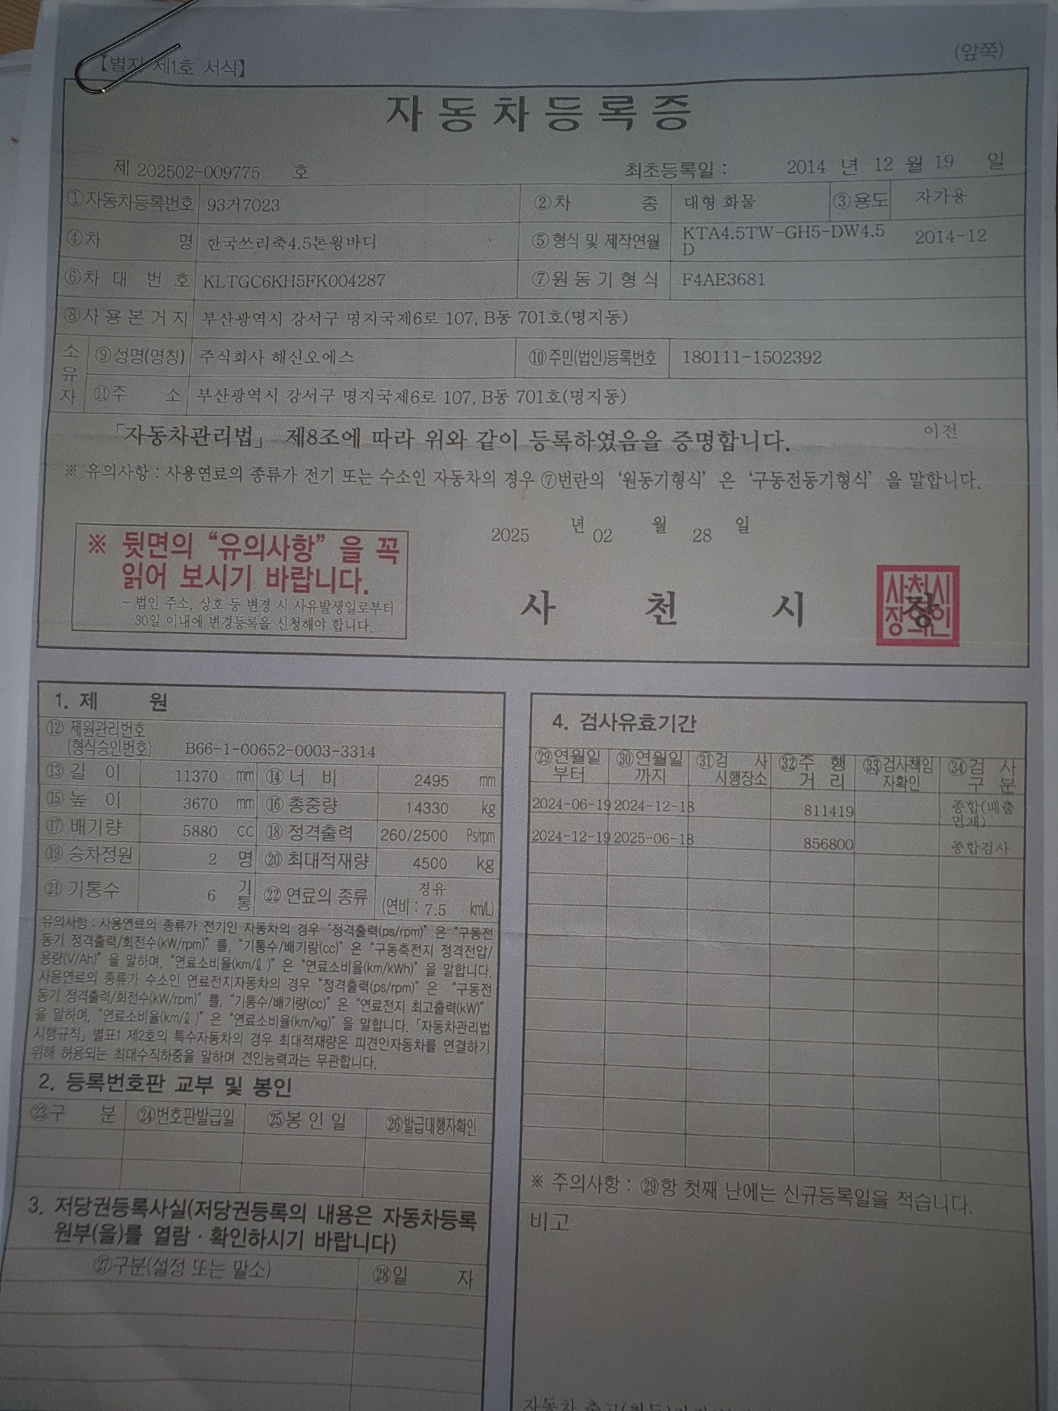 【별지 제1호 서식】
(앞쪽)
자동차등록증
제 202502-009775 호
최초등록일 : 2014 년 12 월 19 일
①자동차등록번호 93거7023 ②차 종 대형 화물 ③용도 자가용
④차 명 한국쓰리축4.5톤윙바디 ⑤형식 및 제작연월 KTA4.5TW-GH5-DW4.5D 2014-12
⑥차 대 번 호 KLTGC6KH5FK004287 ⑦원 동 기 형 식 F4AE3681
⑧사 용 본 거 지 부산광역시 강서구 명지국제6로 107, B동 701호(명지동)
소유자 ⑨성명(명칭) 주식회사 해신오에스 ⑩주민(법인)등록번호 180111-1502392
⑪주 소 부산광역시 강서구 명지국제6로 107, B동 701호(명지동)
「자동차관리법」 제8조에 따라 위와 같이 등록하였음을 증명합니다.
이전
※ 유의사항 : 사용연료의 종류가 전기 또는 수소인 자동차의 경우 ⑦번란의 '원동기형식' 은 '구동전동기형식' 을 말합니다.
2025 년 02 월 28 일
※ 뒷면의 “유의사항” 을 꼭
읽어 보시기 바랍니다.
- 법인 주소, 상호 등 변경 시 사유발생일로부터
30일 이내에 변경등록을 신청해야 합니다.
사 천 시 장
사천시
장의인
1. 제 원
⑫ 제원관리번호
(형식승인번호) B66-1-00652-0003-3314
⑬ 길 이 11370 mm ⑭ 너 비 2495 mm
⑮ 높 이 3670 mm ⑯ 총중량 14330 kg
⑰ 배기량 5880 cc ⑱ 정격출력 260/2500 Ps/rpm
⑲ 승차정원 2 명 ⑳ 최대적재량 4500 kg
㉑ 기통수 6 기통 ㉒ 연료의 종류 경유
(연비 : 7.5 km/L)
유의사항 : 사용연료의 종류가 전기인 자동차의 경우 “정격출력(ps/rpm)” 은 “구동전
동기 정격출력/회전수(kW/rpm)” 를, “기통수/배기량(cc)” 은 “구동축전지 정격전압/
용량(V/Ah)” 을 말하며, “연료소비율(km/ℓ)” 은 “연료소비율(km/kWh)” 을 말합니다.
사용연료의 종류가 수소인 연료전지자동차의 경우 “정격출력(ps/rpm)” 은 “구동전
동기 정격출력/회전수(kW/rpm)” 를, “기통수/배기량(cc)” 은 “연료전지 최고출력(kW)”
을 말하며, “연료소비율(km/ℓ)” 은 “연료소비율(km/kg)” 을 말합니다. 「자동차관리법
시행규칙」 별표1 제2호의 특수자동차의 경우 최대적재량은 피견인자동차를 연결하기
위해 허용되는 최대수직하중을 말하며 견인능력과는 무관합니다.
2. 등록번호판 교부 및 봉인
㉓구 분 ㉔번호판발급일 ㉕봉 인 일 ㉖발급대행자확인
3. 저당권등록사실(저당권등록의 내용은 자동차등록
원부(을)를 열람 · 확인하시기 바랍니다)
㉗구분(설정 또는 말소) ㉘일 자
4. 검사유효기간
㉙연월일부터 ㉚연월일까지 ㉛검 사 시행장소 ㉜주 행 거 리 ㉝검사책임자확인 ㉞검 사 구 분
2024-06-19 2024-12-18 811419 종합(배출면제)
2024-12-19 2025-06-18 856800 종합검사
※ 주의사항 : ㉙항 첫째 난에는 신규등록일을 적습니다.
비고